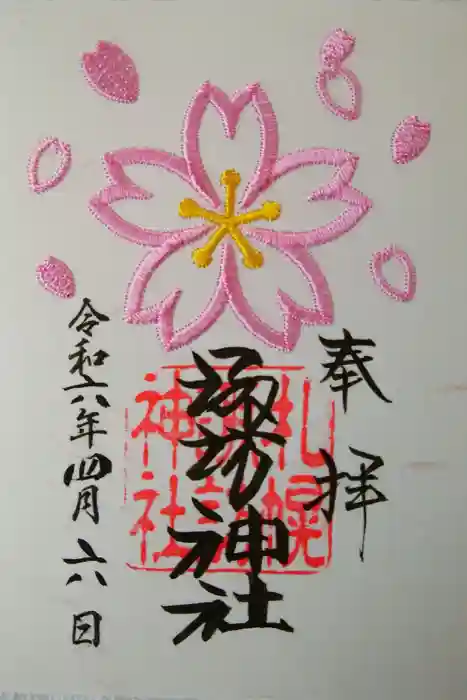 奉拝
札幌諏訪神社
諏訪神社
令和六年四月六日